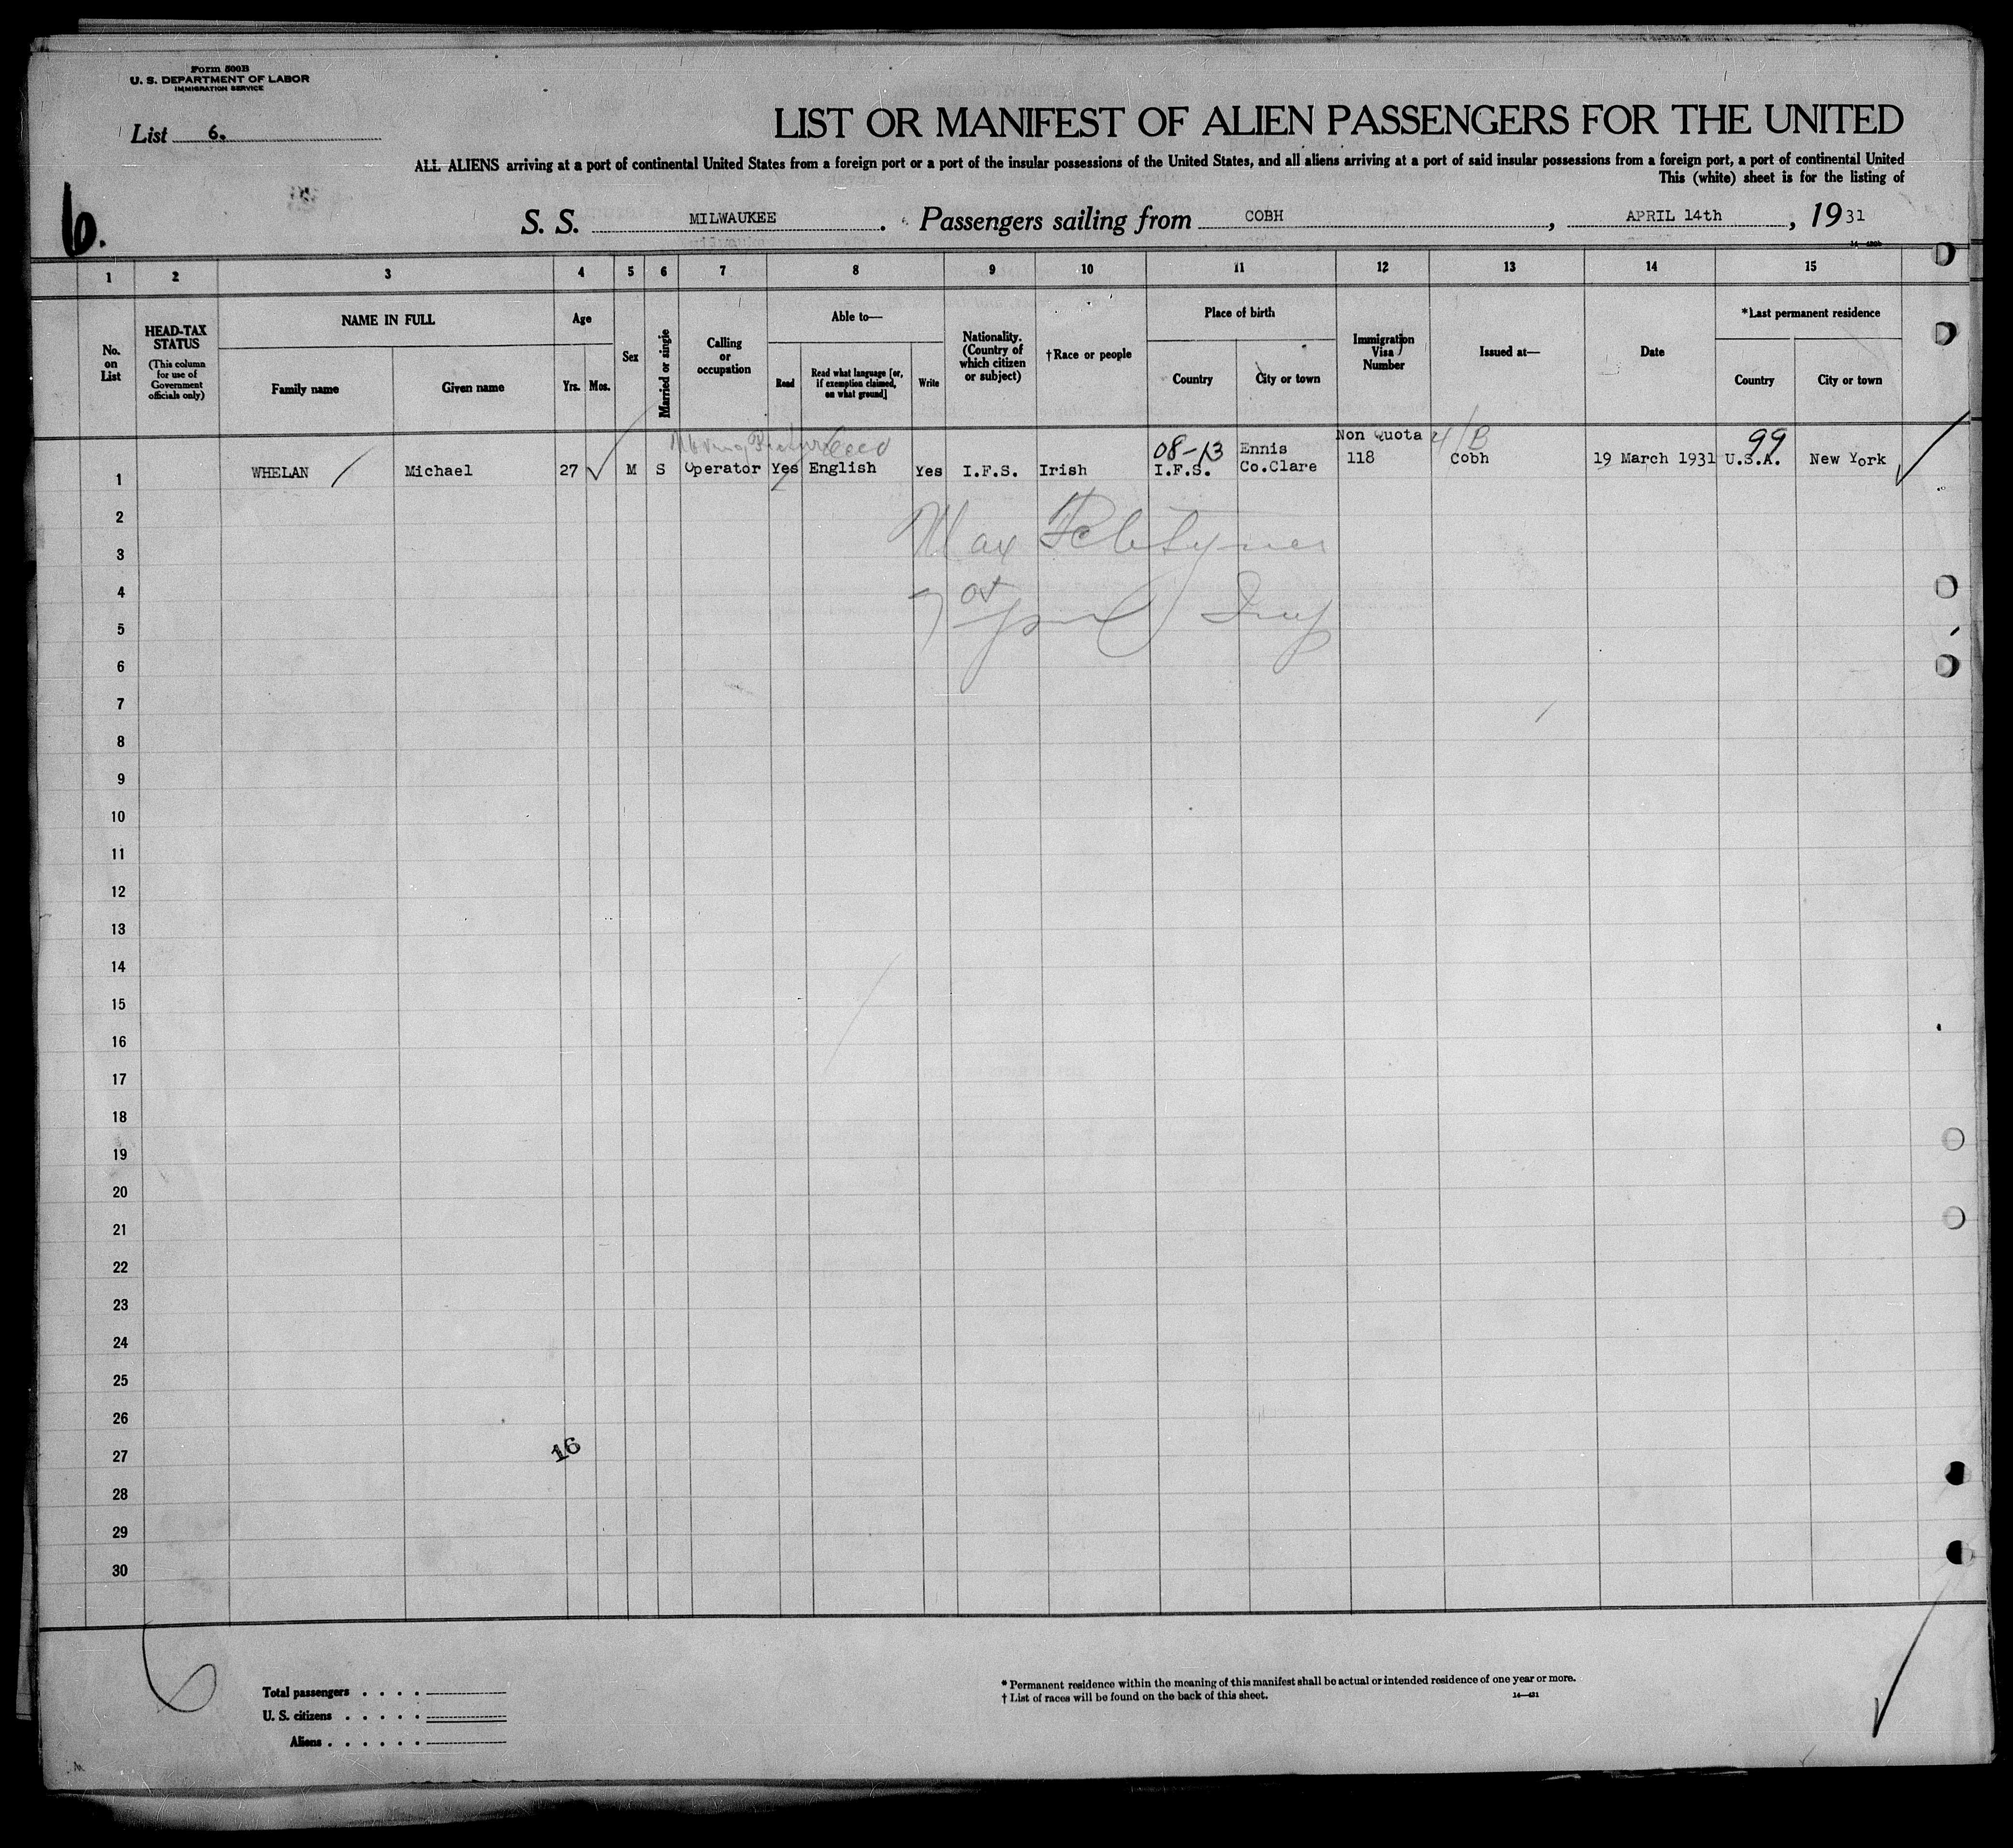 Form 500B
U. S. DEPARTMENT OF LABOR
IMMIGRATION SERVICE
List 6.
LIST OR MANIFEST OF ALIEN PASSENGERS FOR THE UNITED
ALL ALIENS arriving at a port of continental United States from a foreign port or a port of the insular possessions of the United States, and all aliens arriving at a port of said insular possessions from a foreign port, a port of continental United
This (white) sheet is for the listing of
6.
S. S. MILWAUKEE . Passengers sailing from COBH , APRIL 14th , 1931
1 2 3 4 5 6 7 8 9 10 11 12 13 14 15
No. on List
HEAD-TAX STATUS
(This column for use of Government officials only)
NAME IN FULL
Family name
Given name
Age
Yrs. Mos.
Sex
Married or single
Calling or occupation
Able to—
Read
Read what language [or, if exemption claimed, on what ground]
Write
Nationality. (Country of which citizen or subject)
†Race or people
Place of birth
Country
City or town
Immigration Visa Number
Issued at—
Date
*Last permanent residence
Country
City or town
Moving Picture 08-13 Ennis Non Quota 4/B 99
1 WHELAN Michael 27 M S Operator Yes English Yes I.F.S. Irish I.F.S. Co.Clare 118 Cobh 19 March 1931 U.S.A. New York
2
Max
3
4
5
6
7
8
9
10
11
12
13
14
15
16
17
18
19
20
21
22
23
24
25
26
16
27
28
29
30
6
Total passengers . . . .
U. S. citizens . . . . .
Aliens . . . . . .
* Permanent residence within the meaning of this manifest shall be actual or intended residence of one year or more.
† List of races will be found on the back of this sheet.
14—431